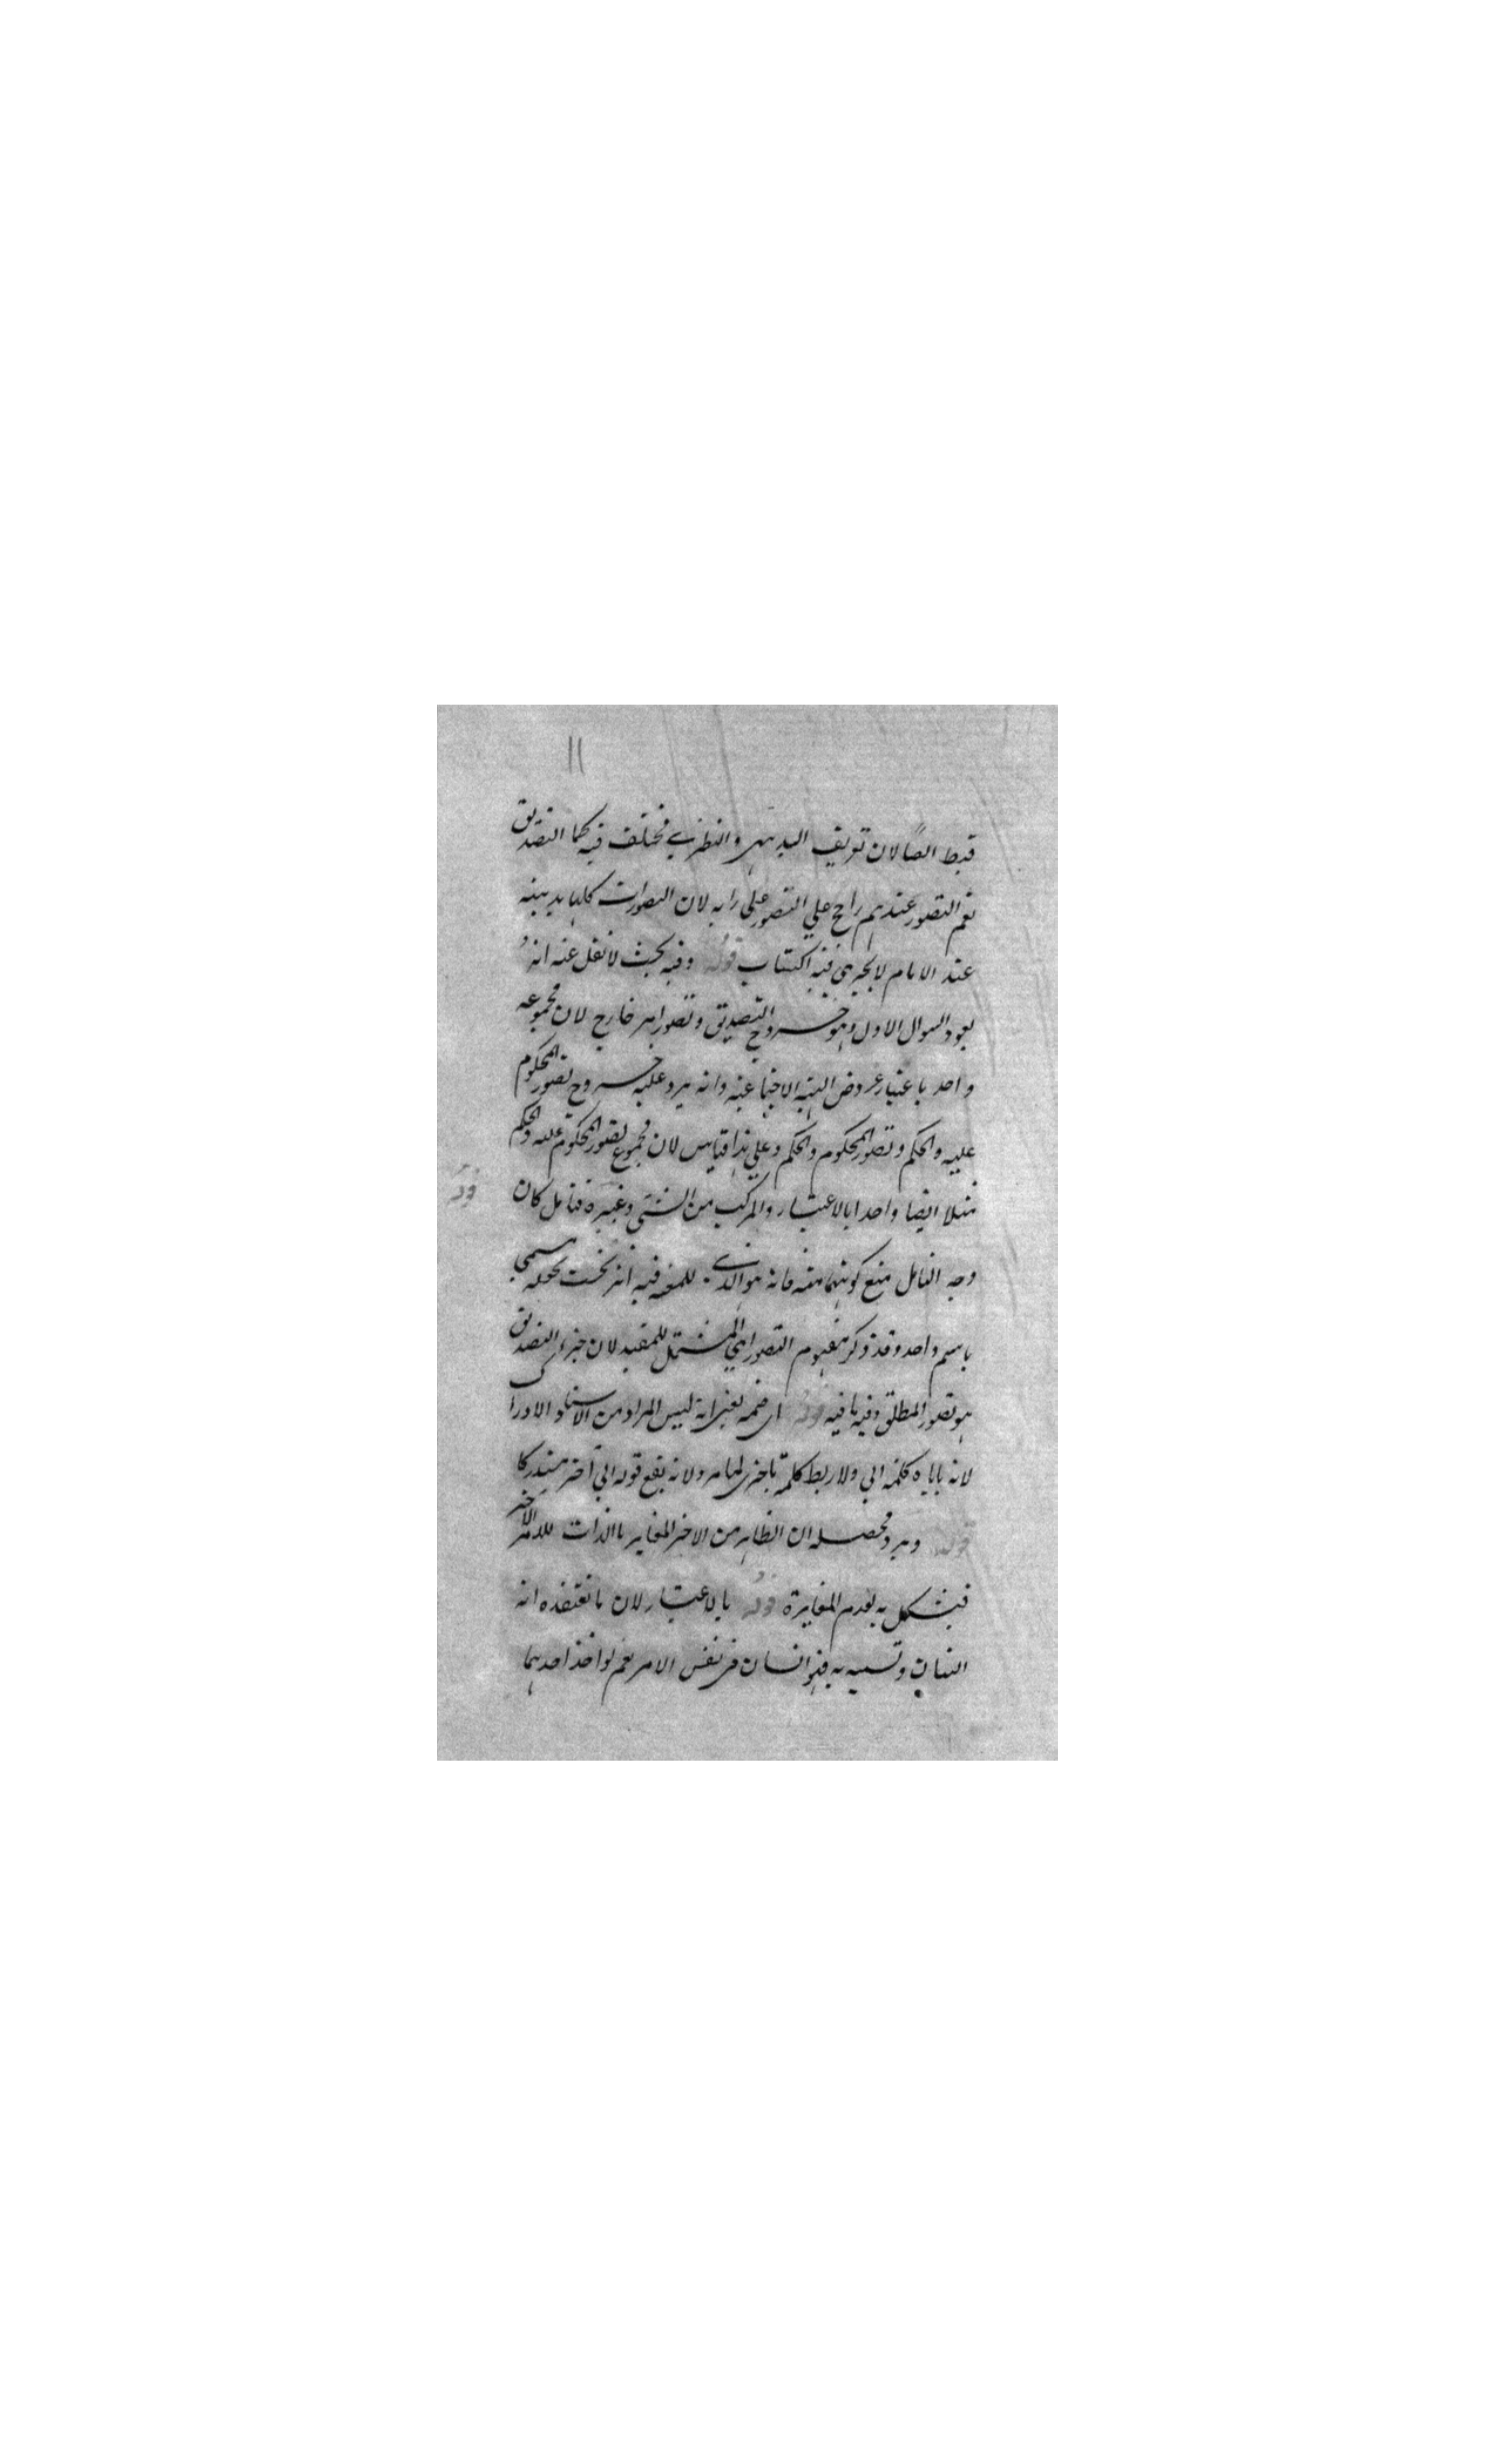 ١١
قبط ايضا لان تعريف البديهي والنظري مختلف فيه كما التصديق
نعم التصور عندهم راجح علي التصور علي رايه لان التصورات كلها بديهية
عند الامام لا يجري فيه اكتساب قوله وفيه بحث لانقل عنه انه
يعود السوال الاول وهو خروج التصديق وتصور امر خارج لان مجموعه
واحد باعتبار عروض الهيئة الاجتماعية وانه يرد عليه خروج تصور المحكوم
عليه والحكم وتصور المحكوم والحكم وعلي هذا قياس لان مجموع تصور المحكوم عليه والحكم
مثلا ايضا واحدا بالاعتبار والمركب من الشئي وغيره فتامل كان
قوله
وجه التامل منع كونهما منه فانه هو الذي فيه يسمي
باسم واحد وقد ذكر مفهوم التصور المشتمل للمقيد لان جزء التصديق
هو تصور المطلق وفيه ما فيه قوله اي ضمه يعني انه ليس المراد من الاسناد الادراك
لانه ياباه كلمة الي ولا ربط كلمة باخري ولانه يقع قوله الي آخر مستدركا
قوله ويرد محصله ان الظاهر من الاخر المغاير بالذات للامر الاخر
فيشكل به بعدم المغايرة قوله بالاعتبار لان ما نعتقده انه
انسان في نفس الامر نعم لو اخذ احدهما